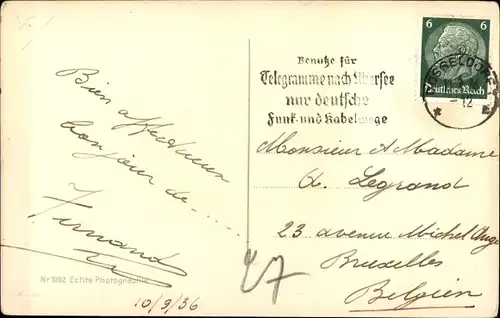 6
6
Deutsches Reich
DÜSSELDORF
-12
Benutze für
Telegramme nach Übersee
nur deutsche
Funk- und Kabelwege
Bien affectueux
bonjour de.....
Fernand
Nr 1992 Echte Photographie
10/9/36
Monsieur & Madame
A. Legrand
23 avenue Michel Ange
Bruxelles
Belgien
27